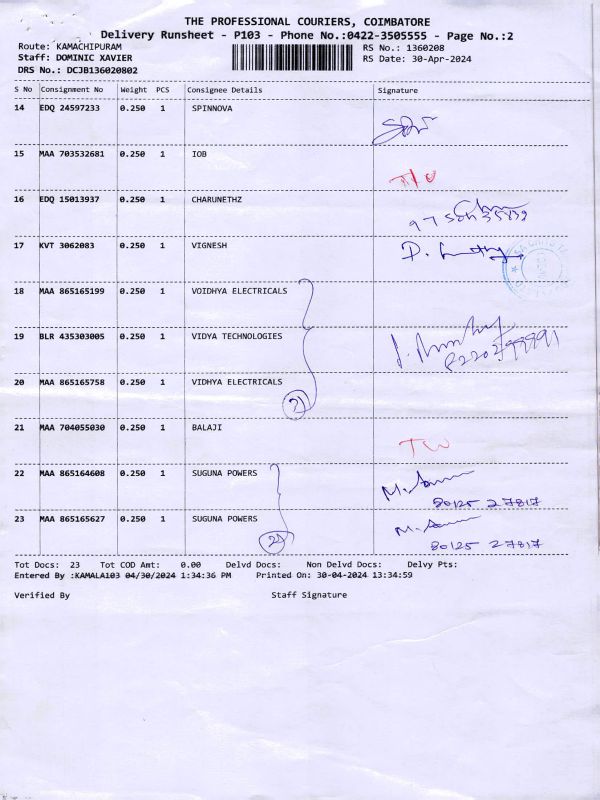 THE PROFESSIONAL COURIERS, COIMBATORE
Delivery Runsheet - P103 - Phone No.:0422-3505555 - Page No.:2
Route: KAMACHIPURAM RS No.: 1360208
Staff: DOMINIC XAVIER RS Date: 30-Apr-2024
DRS No.: DCJB136020802
S No Consignment No Weight PCS Consignee Details Signature
14 EDQ 24597233 0.250 1 SPINNOVA
15 MAA 703532681 0.250 1 IOB
16 EDQ 15013937 0.250 1 CHARUNETHZ
17 KVT 3062083 0.250 1 VIGNESH
18 MAA 865165199 0.250 1 VOIDHYA ELECTRICALS
19 BLR 435303005 0.250 1 VIDYA TECHNOLOGIES
20 MAA 865165758 0.250 1 VIDHYA ELECTRICALS
21 MAA 704055030 0.250 1 BALAJI
22 MAA 865164608 0.250 1 SUGUNA POWERS
80125 27817
23 MAA 865165627 0.250 1 SUGUNA POWERS
80125 27817
Tot Docs: 23 Tot COD Amt: 0.00 Delvd Docs: Non Delvd Docs: Delvy Pts:
Entered By :KAMALA103 04/30/2024 1:34:36 PM Printed On: 30-04-2024 13:34:59
Verified By Staff Signature